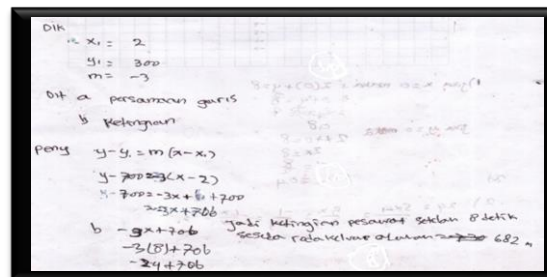 Dik
x₁ = 2
y₁ = 300
m = -3
Dit a persamaan garis
b Ketinggian
Peny y-y₁ = m(x-x₁)
y-700=-3(x-2)
y-700=-3x+6+700
=-3x+706
b -3x+706
-3(8)+706
-24+706
Jadi ketinggian pesawat setelah 8 detik
682 m